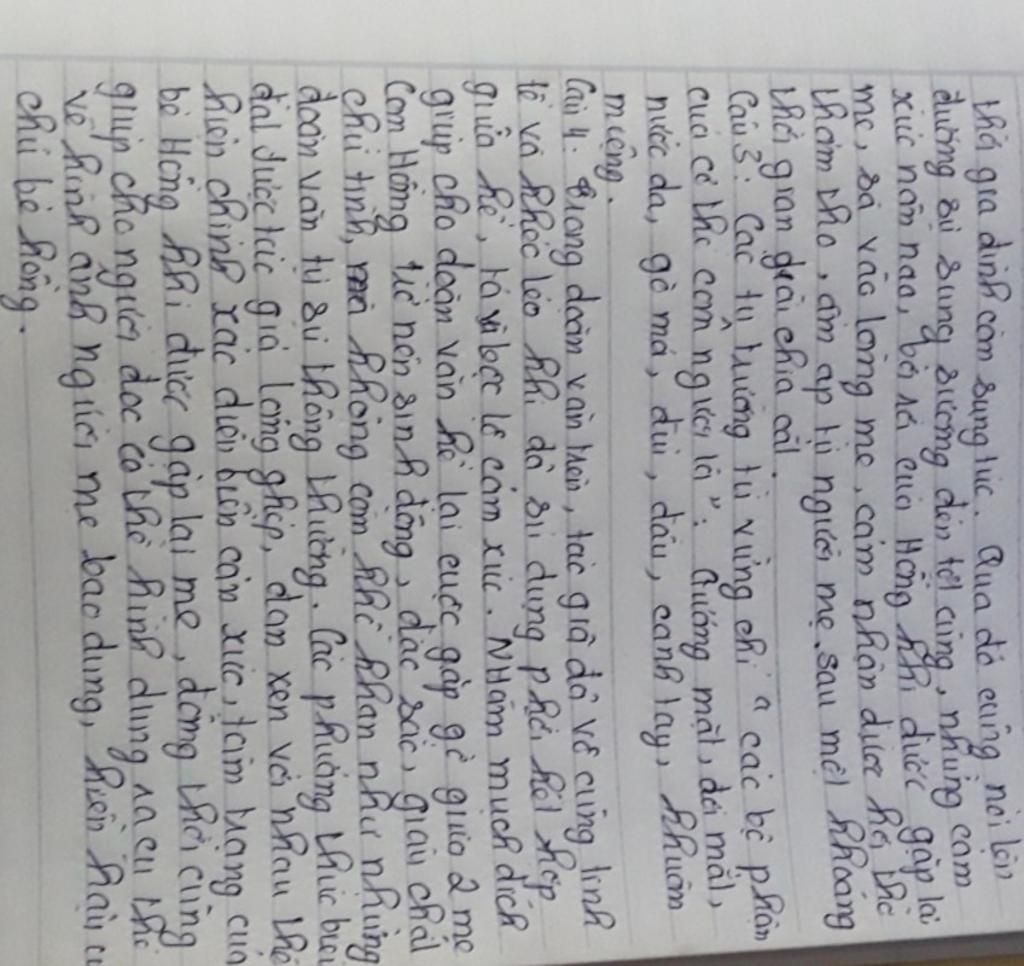 thời gia đình còn sung túc. Qua đó cũng nói lên
được sự sung sướng đến tột cùng, những cảm
xúc nôn nao, bối rối của Hồng khi được gặp lại
mẹ, sà vào lòng mẹ, cảm nhận được hơi thở
thơm tho, ấm áp từ người mẹ sau một khoảng
thời gian dài chia cắt.
Câu 3: Các từ trường từ vựng chỉ "các bộ phận
của cơ thể con người là": Gương mặt, đôi mắt,
nước da, gò má, đùi, đầu, cánh tay, khuôn
miệng.
Câu 4: Trong đoạn văn trên, tác giả đã vô cùng tinh
tế và khéo léo khi đã sử dụng phối kết hợp
giữa kể, tả và bộc lộ cảm xúc. Nhằm mục đích
giúp cho đoạn văn kể lại cuộc gặp gỡ giữa 2 mẹ
con Hồng trở nên sinh động, đặc sắc, giàu chất
chữ tình, mà không còn khô khan như những
đoạn văn tự sự thông thường. Các phương thức biểu
đạt được tác giả lồng ghép, đan xen với nhau thể
hiện chính xác diễn biến cảm xúc, tâm trạng của
bé Hồng khi được gặp lại mẹ, đồng thời cũng
giúp cho người đọc có thể hình dung ra cụ thể
về hình ảnh người mẹ bao dung, hiền hậu
chú bé hồng.